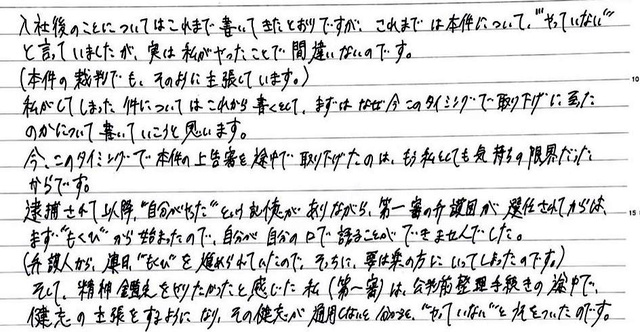 入社後のことについてはこれまで書いてきたとおりですが、これまでは本件について、"やっていない"
と言っていましたが、実は私がやったことで間違いないのです。
(本件の裁判でも、そのように主張しています。)
私がしてしまった件についてはこれから書くとして、まずはなぜ今このタイミングで取り下げに至った
のかについて書いていこうと思います。
今、このタイミングで本件の上告審を途中で取り下げたのは、もう私としても気持ちの限界だった
からです。
逮捕されて以降、"自分がやった"という記憶がありながら、第一審の弁護団が選任されてからは、
まず"もくひ"から始まったので、自分が自分の口で語ることができませんでした。
(弁護人から、連日"もくひ"を進められていたので、そっちに、要は楽の方にいってしまったのです。)
そして、精神鑑定をやりたかったと感じた私(第一審)は、公判前整理手続きの途中で、
健忘の主張をするようになり、その健忘が通用しないと分かると、"やっていない"とうそをついたのです。
10
15